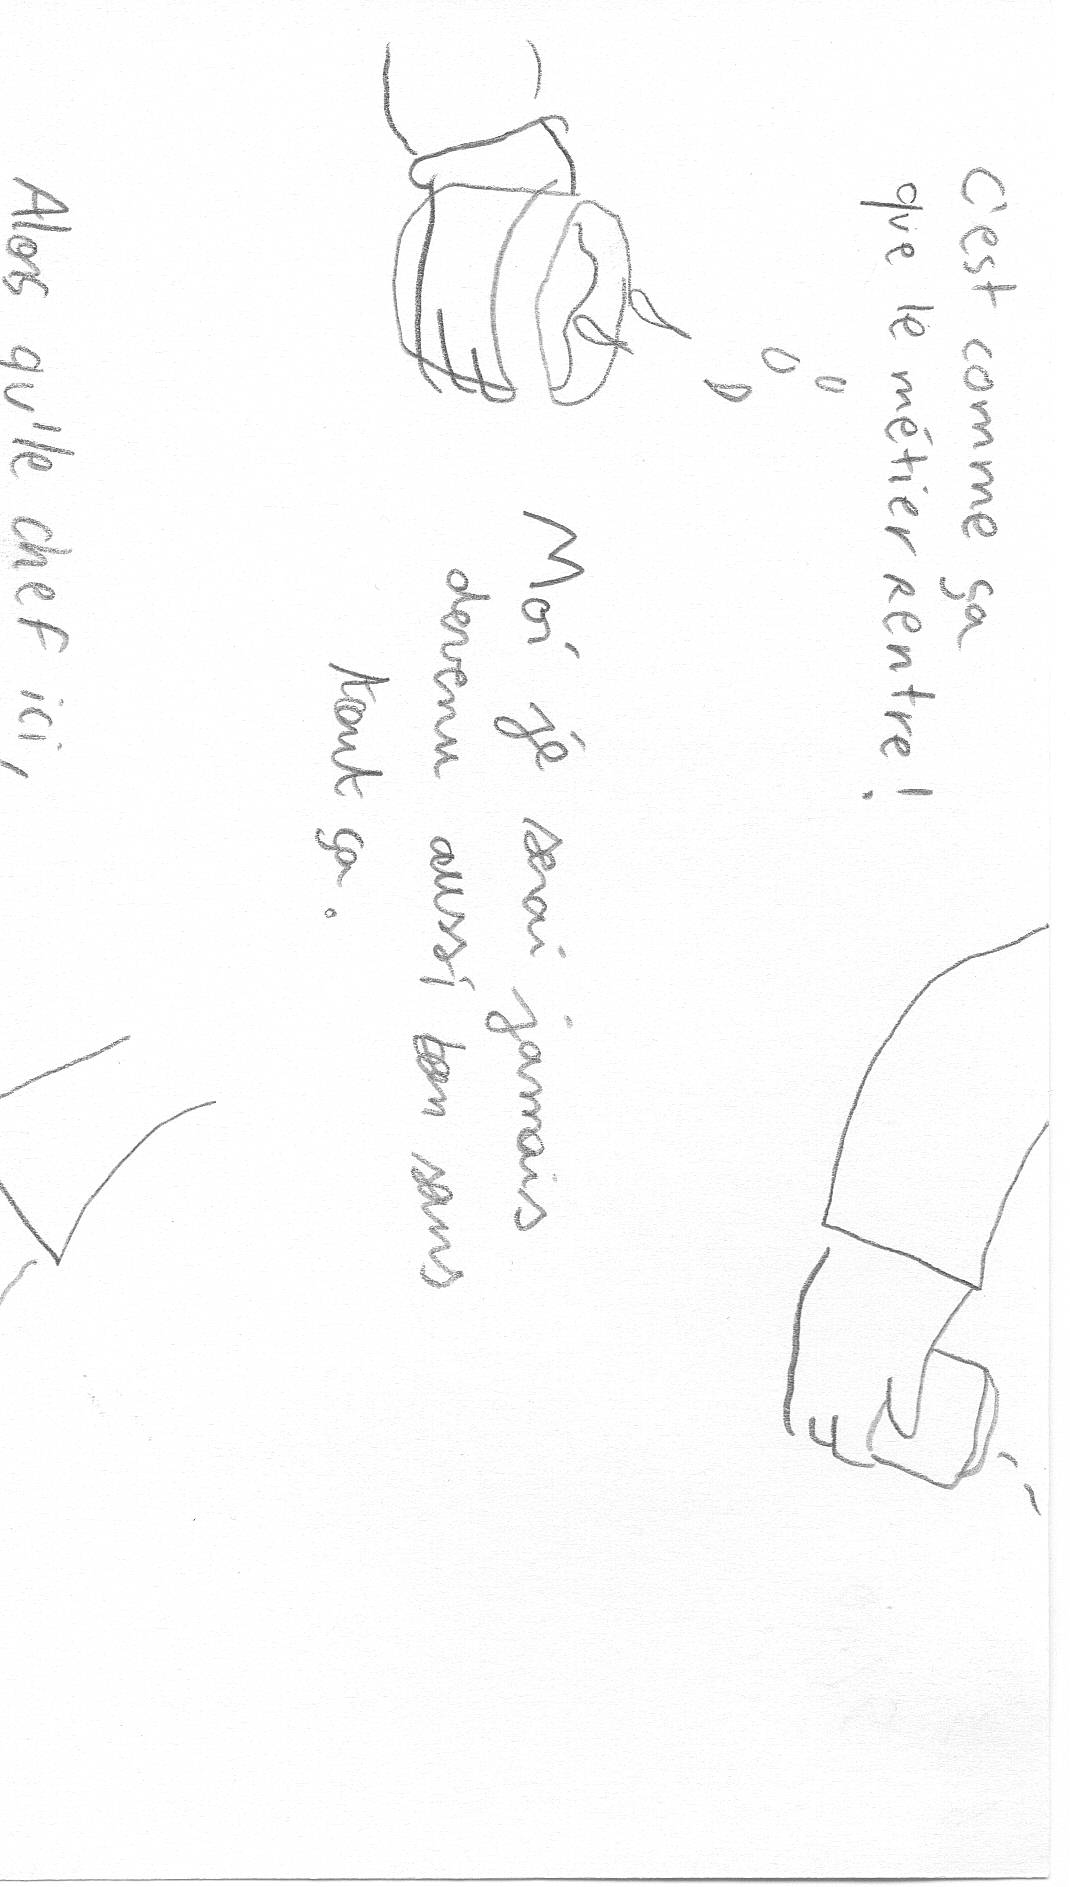 C'est comme ça
que le métier rentre !
Moi je serai jamais
devenu aussi bon sans
tout ça.
Alors qu'le chef ici,